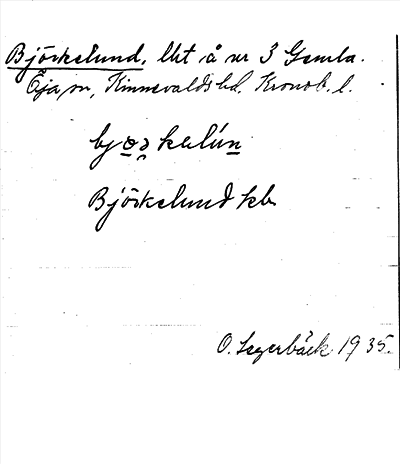 Björkelund, lht å nr 3 Gemla.
Öja sn, Kinnevalds hd, Kronob. l.
Björkelund kb
O. Lagerbäck 1935.